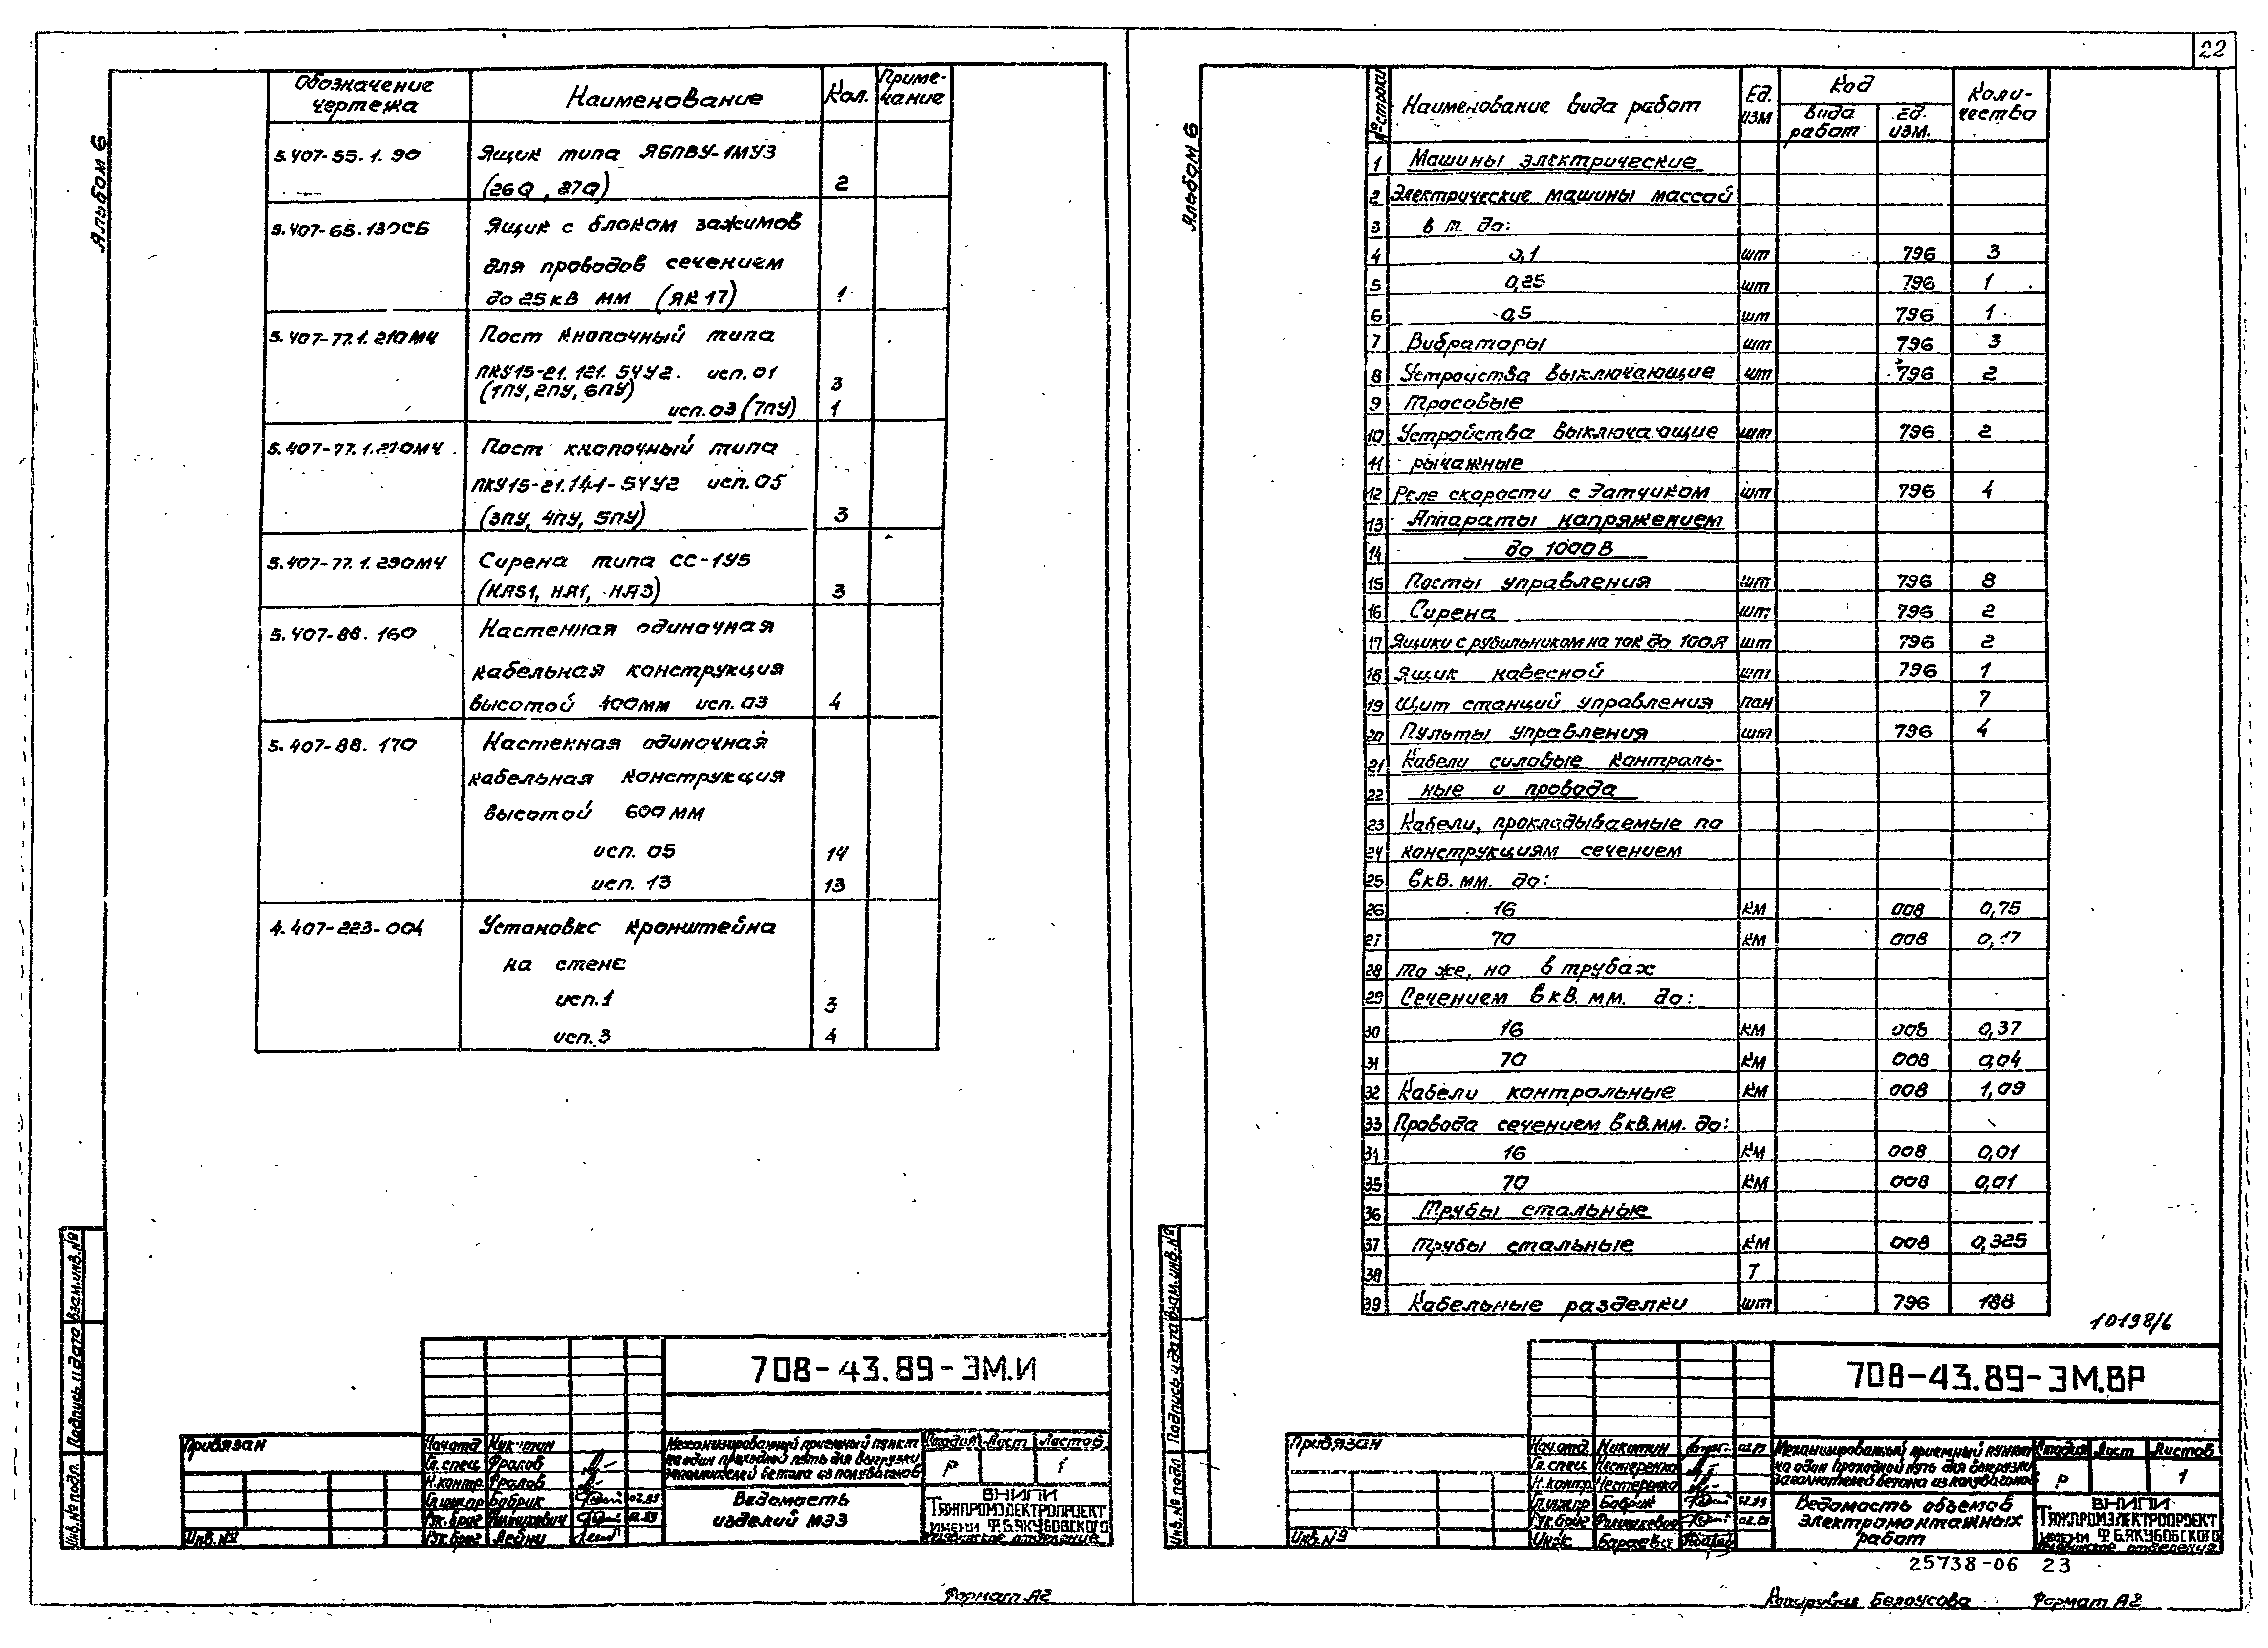 22
Альбом 6
Обозначение чертежа Наименование Кол. Приме-чание
5.407-55.1.90 Ящик типа ЯБПВУ-1МУ3
(26Q, 27Q) 2
5.407-65.130СБ Ящик с блоком зажимов
для проводов сечением
до 25 кв мм (ЯК17) 1
5.407-77.1.210МЧ Пост кнопочный типа
ПКУ15-21.121.54У2. исп. 01
(1ПУ, 2ПУ, 6ПУ) 3
исп. 03 (7ПУ) 1
5.407-77.1.210МЧ Пост кнопочный типа
ПКУ15-21.141-54У2 исп. 05
(3ПУ, 4ПУ, 5ПУ) 3
5.407-77.1.290МЧ Сирена типа СС-1У5
(HAS1, HA1, HA3) 3
5.407-88.160 Настенная одиночная
кабельная конструкция
высотой 400мм исп. 03 4
5.407-88.170 Настенная одиночная
кабельная конструкция
высотой 600 мм
исп. 05 14
исп. 13 13
4.407-223-004 Установка кронштейна
на стене
исп. 1 3
исп. 3 4
Инв.№ подл. Подпись и дата Взам.инв.№
708-43.89-ЭМ.И
Привязан
Инв.№
Нач.отд Никитин
Гл.спец Фролов
Н.контр Фролов
Гл.инж.пр Бобрик 02.89
Рук.бриг Филишкевич 02.89
Рук.бриг
Механизированный приемный пункт
на один проходной путь для выгрузки
заполнителей бетона из полувагонов
Стадия Лист Листов
Р 1
Ведомость
изделий МЭЗ
ВНИПИ
Тяжпромэлектропроект
имени Ф.Б.Якубовского
Формат А2
Альбом 6
№ строки Наименование вида работ Ед. изм Код вида работ Код ед. изм. Коли-чество
1 Машины электрические
2 Электрические машины массой
3 в т. до:
4 0,1 шт 796 3
5 0,25 шт 796 1
6 0,5 шт 796 1
7 Вибраторы шт 796 3
8 Устройства выключающие шт 796 2
9 тросовые
10 Устройства выключающие шт 796 2
11 рычажные
12 Реле скорости с датчиком шт 796 4
13 Аппараты напряжением
14 до 1000 В
15 Посты управления шт 796 8
16 Сирена шт. 796 2
17 Ящики с рубильником на ток до 100А шт 796 2
18 Ящик навесной шт 796 1
19 Щит станций управления пан 7
20 Пульты управления шт 796 4
21 Кабели силовые контроль-
22 ные и провода
23 Кабели, прокладываемые по
24 конструкциям сечением
25 в кв. мм. до:
26 16 км 008 0,75
27 70 км 008 0,17
28 то же, но в трубах
29 Сечением в кв. мм. до:
30 16 км 008 0,37
31 70 км 008 0,04
32 Кабели контрольные км 008 1,09
33 Провода сечением в кв.мм. до:
34 16 км 008 0,01
35 70 км 008 0,01
36 Трубы стальные
37 Трубы стальные км 008 0,325
38 Т
39 Кабельные разделки шт 796 188
10198/6
Инв.№ подл Подпись и дата Взам.инв.№
708-43.89-ЭМ.ВР
Привязан
Инв.№
Нач.отд. Никитин 02.89
Гл.спец Нестеренко
Н.контр Нестеренко
Гл.инж.пр Бобрик 02.89
Рук.бриг Филишкевич 02.89
Инж.
Механизированный приемный пункт
на один проходной путь для выгрузки
заполнителей бетона из полувагонов
Стадия Лист Листов
Р 1
Ведомость объемов
электромонтажных
работ
ВНИПИ
Тяжпромэлектропроект
имени Ф.Б.Якубовского
25738-06 23
Копировал Белоусова Формат А2